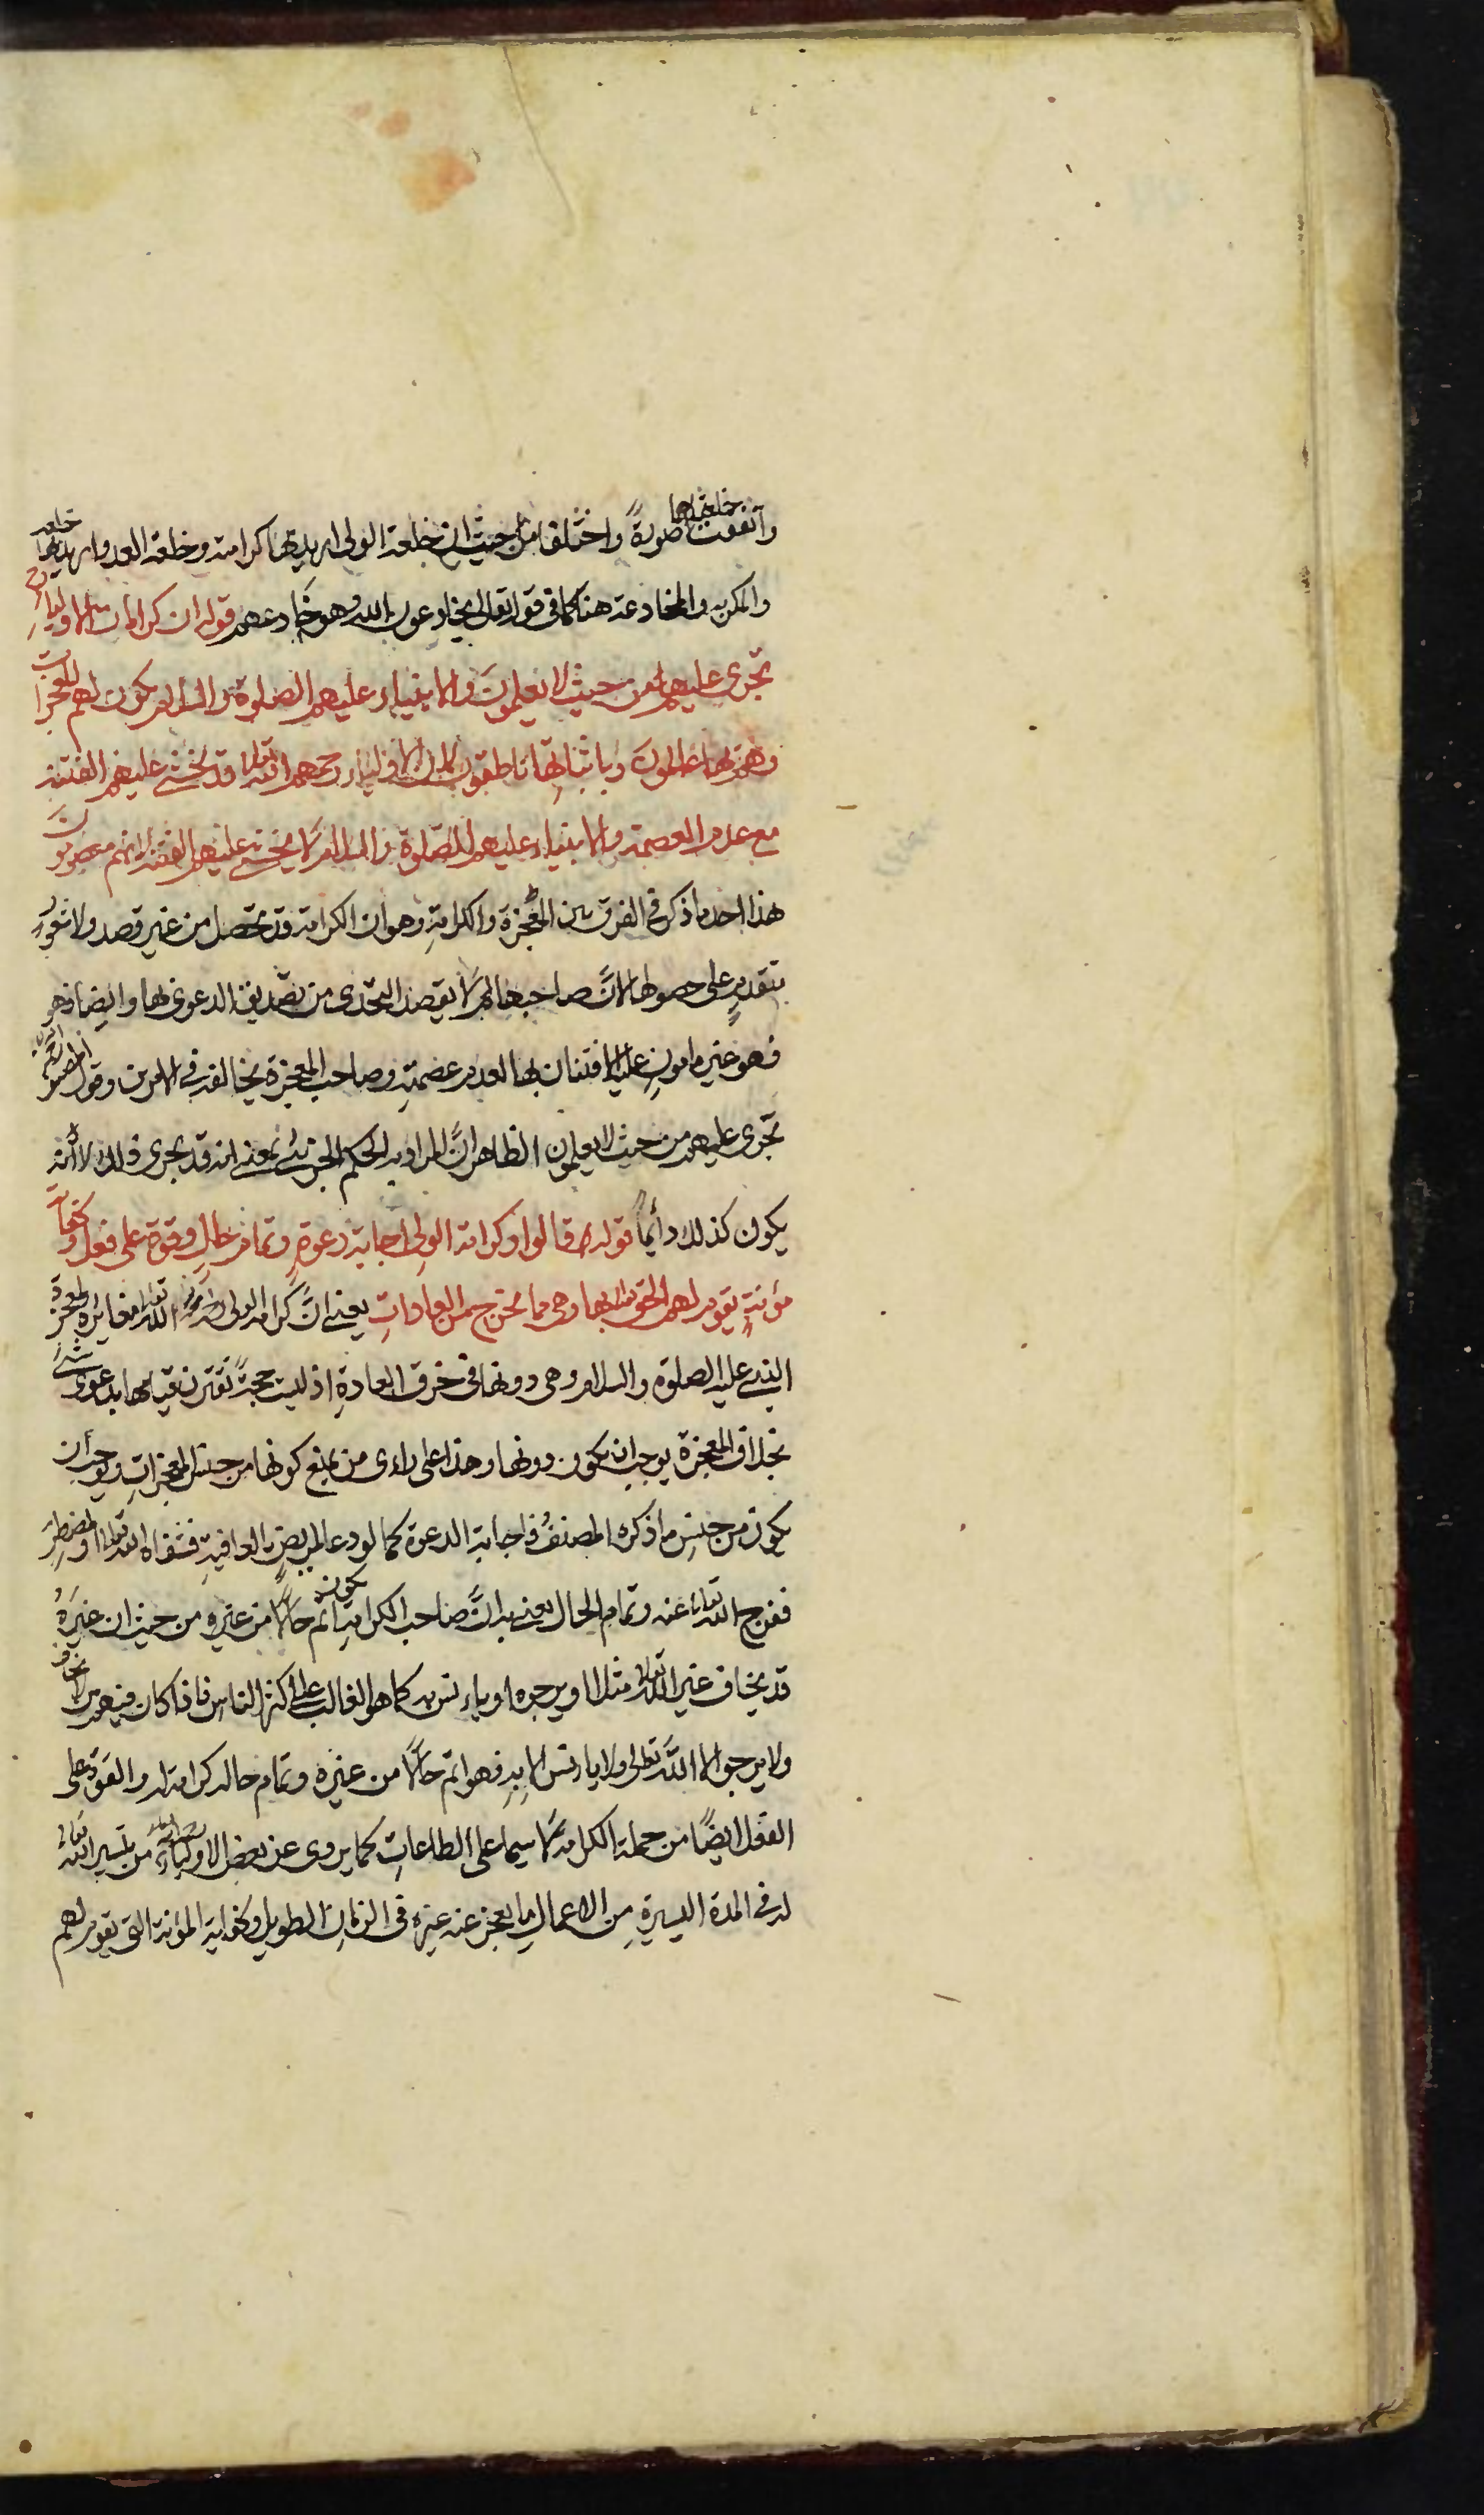 واتفقت خلعتاهما صورةً واختلفا من حيث ان خلعة الولى اريد بها كرامته وخلعة العدو اريد بها خداعه
والمكر به والمخادعة هنا كما فى قوله تعالى يخادعون الله وهو خادعهم قوله ان كرامات الاولياء
تجرى عليهم من حيث لا يعلمون والانبياء عليهم الصلوة والسلام يكون لهم المعجزات
وهم بها عالمون وباثباتها ناطقون لان الاولياء رحمهم الله تعالى قد يخشى عليهم الفتنة
مع عدم العصمة والانبياء عليهم الصلوة والسلام لا يخشى عليهم الفتنة لانهم معصومون
هذا احد ما ذكر فى الفرق بين المعجزة والكرامة وهو ان الكرامة قد تحصل من غير قصد ولا شعور
بتقدم على حصولها لانَّ صاحبها لا يقصد التحدى من تصديق الدعوى بها وايضا فهو
فهو غير مامون عليه الافتتان بها لعدم عصمته وصاحب المعجزة يخالفه فى الامرين وقول المص
تجرى عليهم من حيث لا يعلمون الظاهر انَّ المراد به الحكم الجزئى بمعنى انه قد يجرى ذلك لا أنه
يكون كذلك دائماً قوله قالوا وكرامة الولى اجابة دعوة وتمام حال وقوة على فعل وكفاية
مؤنة يقوم لهم الحق بها وهى مما يخرج من العادات يعنى انَّ كرامة الولى الله تعالى مغايرة لمعجزة
النبى عليه الصلوة والسلام وهى دونها فى خرق العادة اذ ليست حجةً تقترن بها بدعوى شئ
بخلاف المعجزة يوجب ان يكون دونها وهذا على راى من يمنع كونها من جنس المعجزات ويوجب ان
يكون من جنس ما ذكره المصنف فاجابة الدعوة كما لو دعا لمريض بالعافية فشفاه الله تعالى او لمضطر
ففرج الله تعالى عنه وتمام الحال يعنى به انَّ صاحب الكرامة يكون اتم حالًا من غيره من حيث ان غيرَهُ
قد يخاف غير الله تعالى مثلا او يرجوه او يانس به كما هو الغالب على اكثر الناس فاذا كان فيهم من لا يخاف
ولا يرجو الا الله تعالى ولا يانس الا به فهو اتم حالًا من غيره وتمام حاله كرامة له والقوة على
الفعل ايضًا من جملة الكرامة لا سيما على الطاعات كما يروى عن بعض الاولياء من تيسير الله تعالى
له فى المدة اليسيرة من الاعمال ما يعجز عنه غيره فى الزمان الطويل وكفاية المؤنة التى يقوم لهم